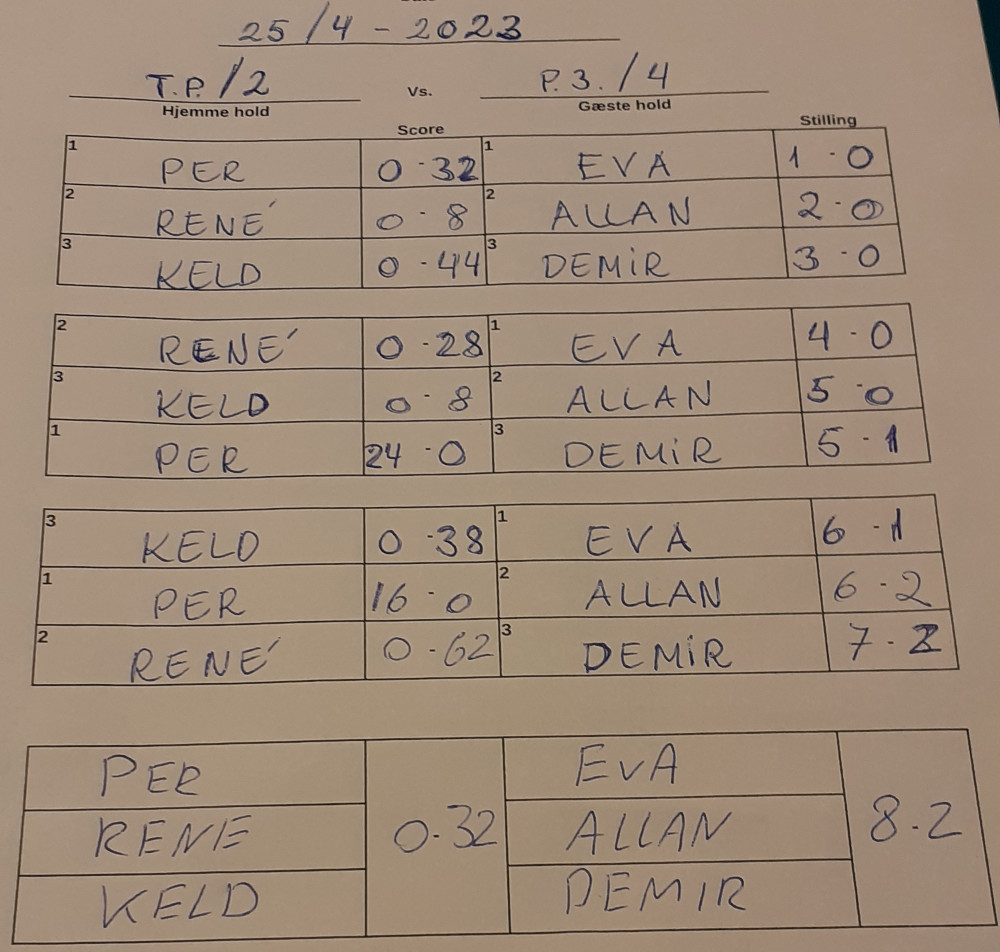 25/4-2023
T.P./2 vs. P.3./4
Hjemme hold Gæste hold
Score Stilling
1 PER 0-32 1 EVA 1-0
2 RENÉ 0-8 2 ALLAN 2-0
3 KELD 0-44 3 DEMiR 3-0
2 RENÉ 0-28 1 EVA 4-0
3 KELD 0-8 2 ALLAN 5-0
1 PER 24-0 3 DEMiR 5-1
3 KELD 0-38 1 EVA 6-1
1 PER 16-0 2 ALLAN 6-2
2 RENÉ 0-62 3 DEMiR 7-2
PER EVA
RENE 0-32 ALLAN 8-2
KELD DEMIR